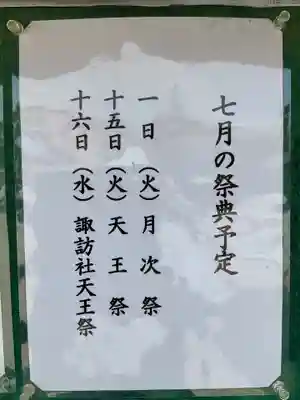 七月の祭典予定
一日（火）月次祭
十五日（火）天王祭
十六日（水）諏訪社天王祭